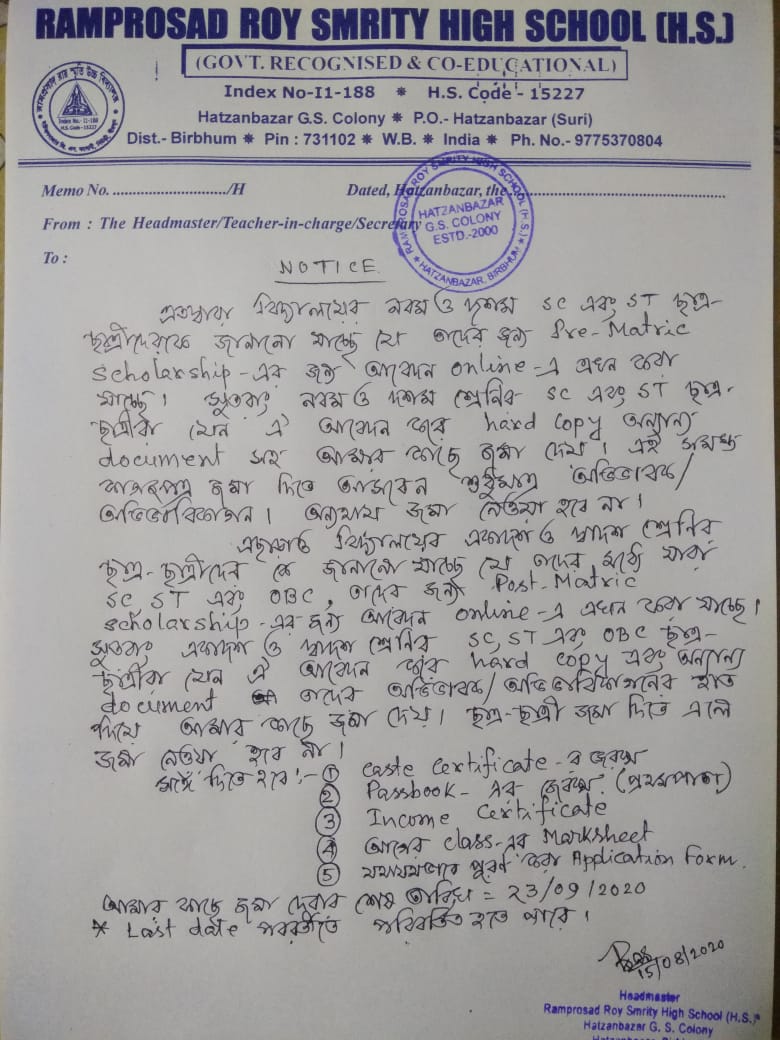 RAMPROSAD ROY SMRITY HIGH SCHOOL (H.S.)
(GOVT. RECOGNISED & CO-EDUCATIONAL)
Index No-I1-188 * H.S. Code - 15227
Hatzanbazar G.S. Colony * P.O.- Hatzanbazar (Suri)
Dist.- Birbhum * Pin : 731102 * W.B. * India * Ph. No.- 9775370804
Index No.- I1-188
H.S. Code-15227
Memo No. ............................../H Dated, Hatzanbazar, the............................................................
From : The Headmaster/Teacher-in-charge/Secretary
To :
RAMPROSAD ROY SMRITY HIGH SCHOOL (H.S.)
HATZANBAZAR
G.S. COLONY
ESTD.-2000
* HATZANBAZAR, BIRBHUM *
NOTICE
এতদ্বারা বিদ্যালয়ের নবম ও দশম SC এবং ST ছাত্র-
ছাত্রীদেরকে জানানো যাচ্ছে যে তাদের জন্য Pre-Matric
Scholarship-এর জন্য আবেদন online-এ এখন করা
যাচ্ছে। সুতরাং নবম ও দশম শ্রেনির SC এবং ST ছাত্র-
ছাত্রীরা যেন ঐ আবেদন করে hard copy অন্যান্য
document সহ আমার কাছে জমা দেয়। এই সমস্ত
কাগজপত্র জমা দিতে আসবেন শুধুমাত্র অভিভাবক/
অভিভাবিকাগন। অন্যথায় জমা নেওয়া হবে না।
এছাড়াও বিদ্যালয়ের একাদশ ও দ্বাদশ শ্রেনির
ছাত্র-ছাত্রীদের কে জানানো যাচ্ছে যে তাদের মধ্যে যারা
SC, ST এবং OBC, তাদের জন্য Post-Matric
Scholarship-এর জন্য আবেদন online-এ এখন করা যাচ্ছে।
সুতরাং একাদশ ও দ্বাদশ শ্রেনির SC, ST এবং OBC ছাত্র-
ছাত্রীরা যেন ঐ আবেদন করে hard copy এবং অন্যান্য
document তাদের অভিভাবক/অভিভাবিকাগনের হাত
দিয়ে আমার কাছে জমা দেয়। ছাত্র-ছাত্রী জমা দিতে এলে
জমা নেওয়া হবে না।
সঙ্গে দিতে হবে:- ① Caste Certificate-র জেরক্স
② Passbook-এর জেরক্স (প্রথমপাতা)
③ Income Certificate
④ আগের class-এর Marksheet
⑤ যথাযথভাবে পূরণ করা Application Form.
আমার কাছে জমা দেবার শেষ তারিখ = 23/09/2020
* Last date পরবর্তীতে পরিবর্তিত হতে পারে।
15/08/2020
Headmaster
Ramprosad Roy Smrity High School (H.S.)
Hatzanbazar G. S. Colony